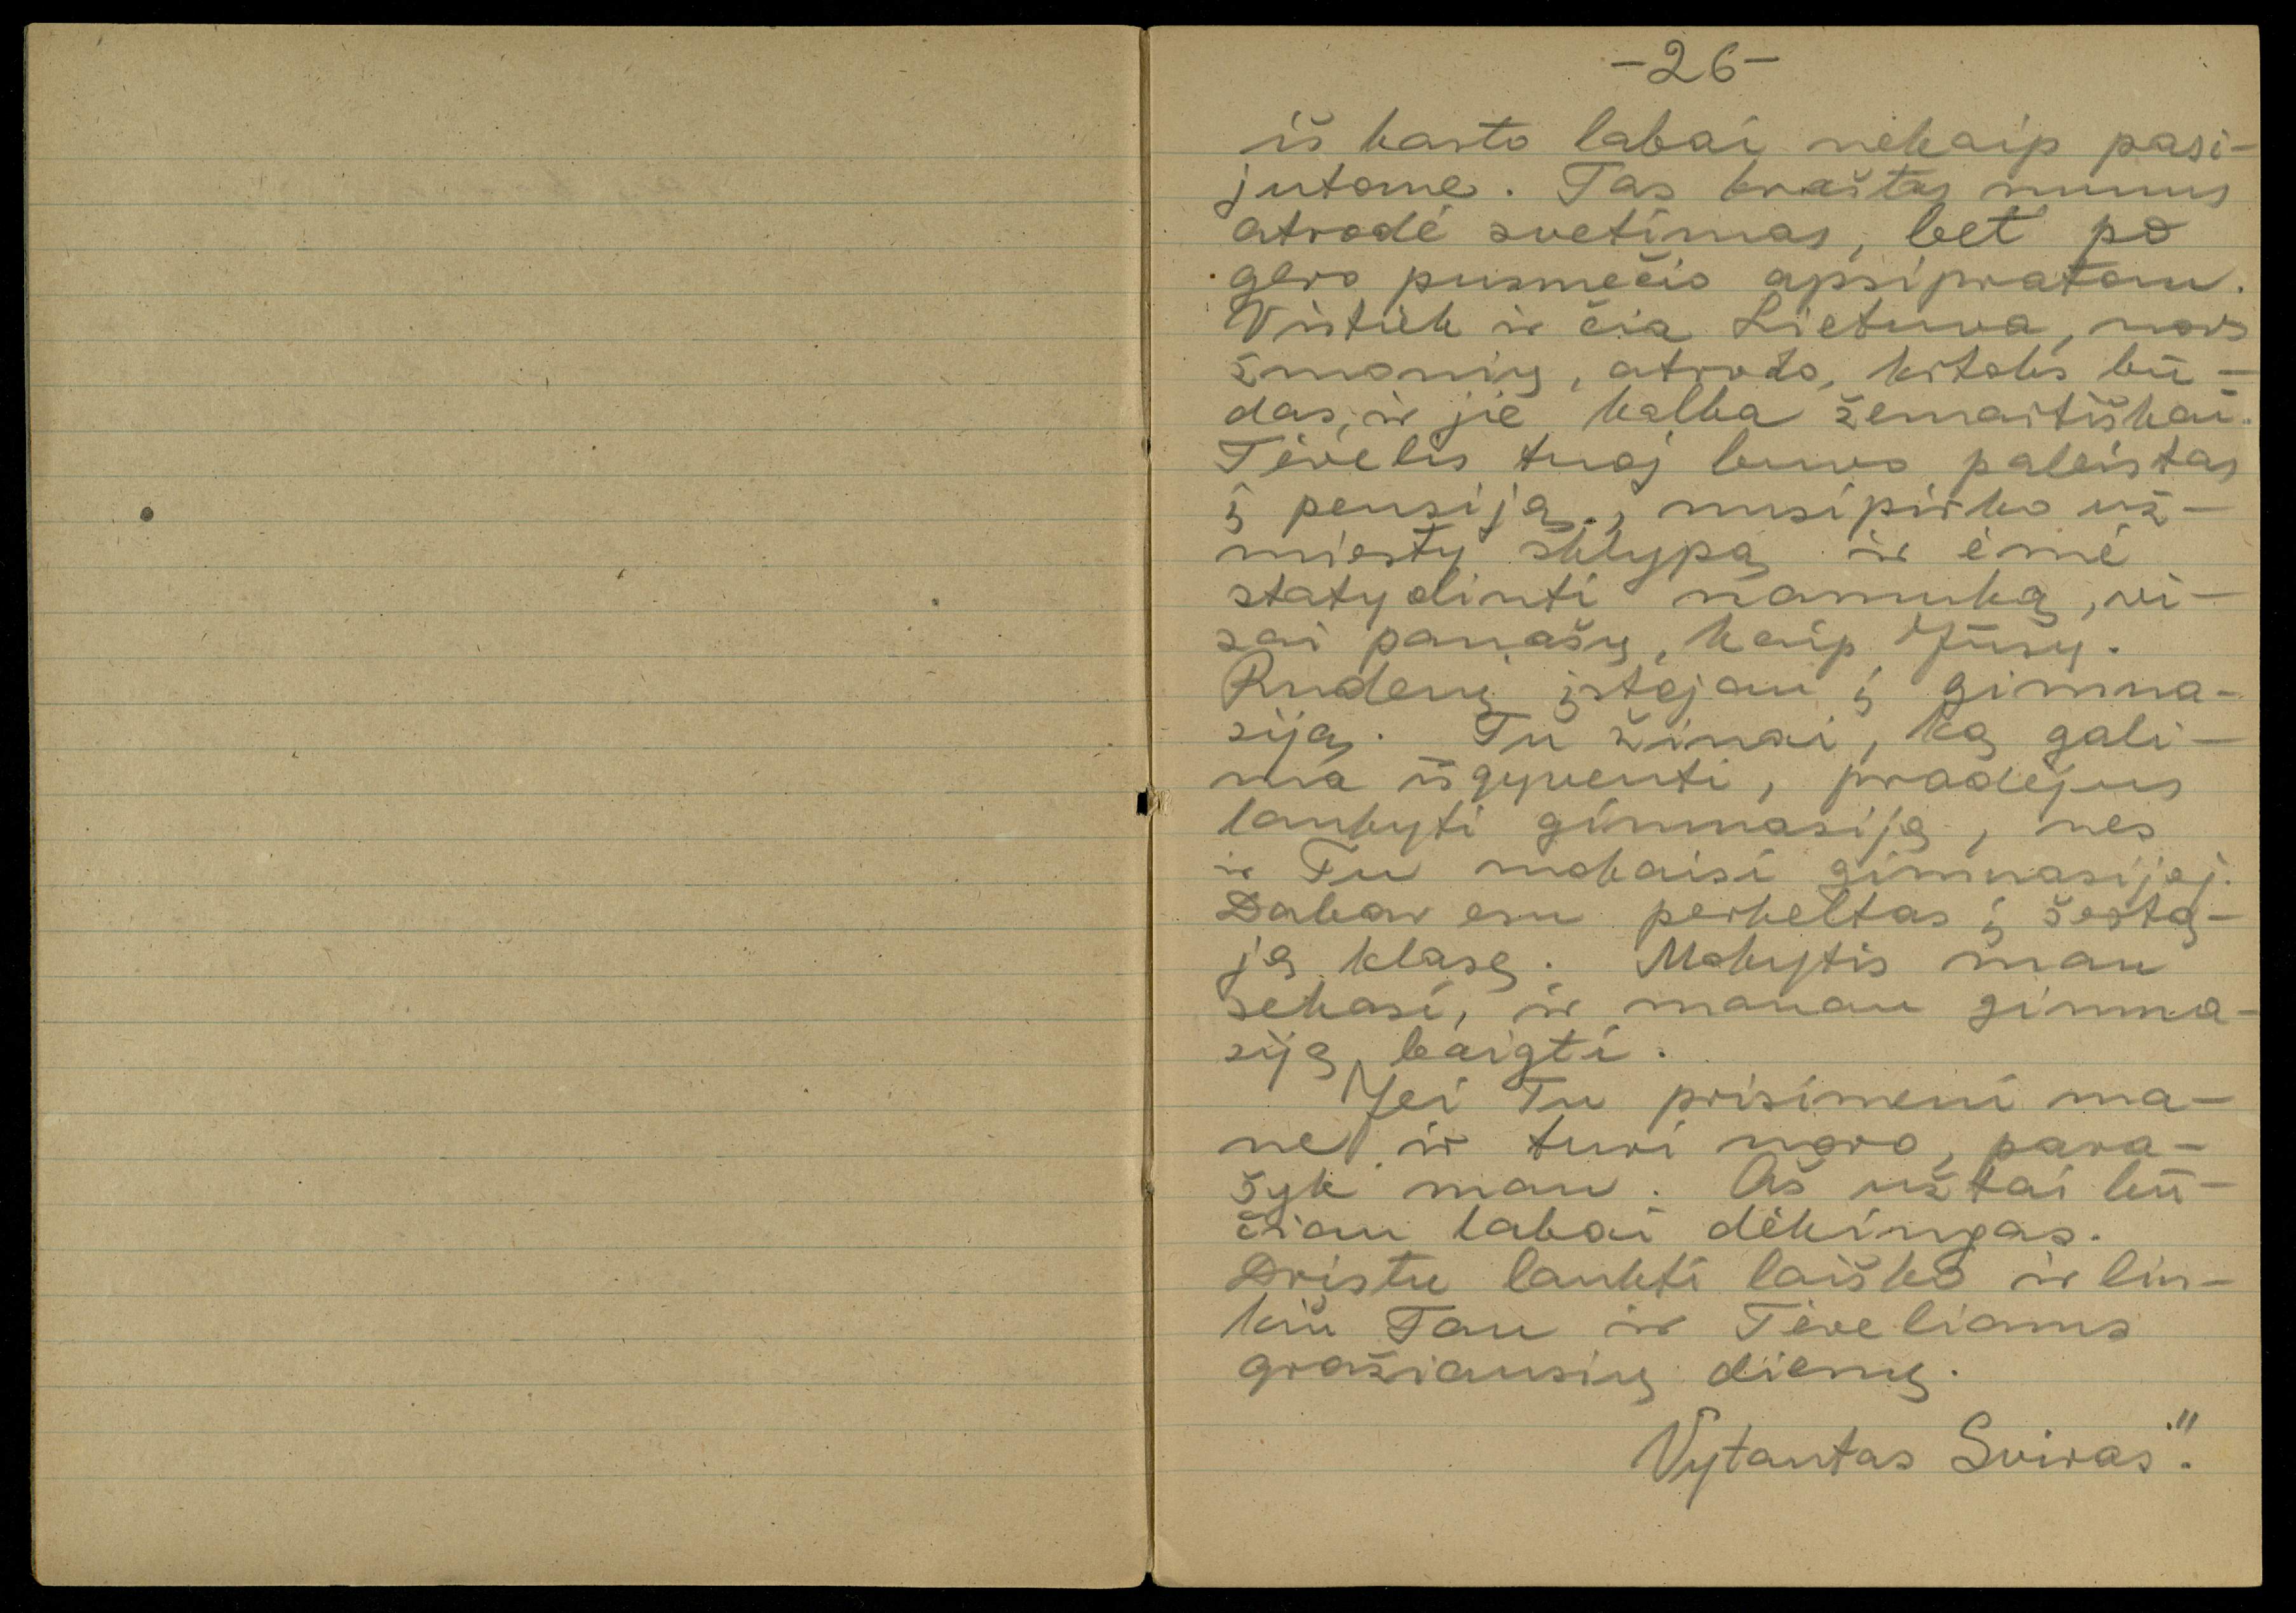 -26-
iš karto labai nekaip pasi-
jutome. Tas kraštas mums
atrodė svetimas, bet po
gero pusmečio apsipratom.
Vistiek ir čia Lietuva, nors
žmonių, atrodo, kitoks bū-
das, ir jie kalba žemaitiškai.
Tėvelis tuoj buvo paleistas
į pensiją, nusipirko už-
miesty sklypą ir ėmė
statydinti namuką, vi-
sai panašų, kaip Jūsų.
Rudenį įstojau į gimna-
ziją. Tu žinai, ką gali-
ma išgyventi, pradėjus
lankyti gimnaziją, nes
ir Tu mokaisi gimnazijoj.
Dabar esu perkeltas į šeštą-
ją klasę. Mokytis man
sekasi, ir manau gimna-
ziją baigti.
Jei Tu prisimeni ma-
ne ir turi noro, para-
šyk man. Aš užtai bū-
čiau labai dėkingas.
Dristu laukti laiško ir lin-
kiu Tau ir Tėveliams
gražiausių dienų.
Vytautas Sviras".